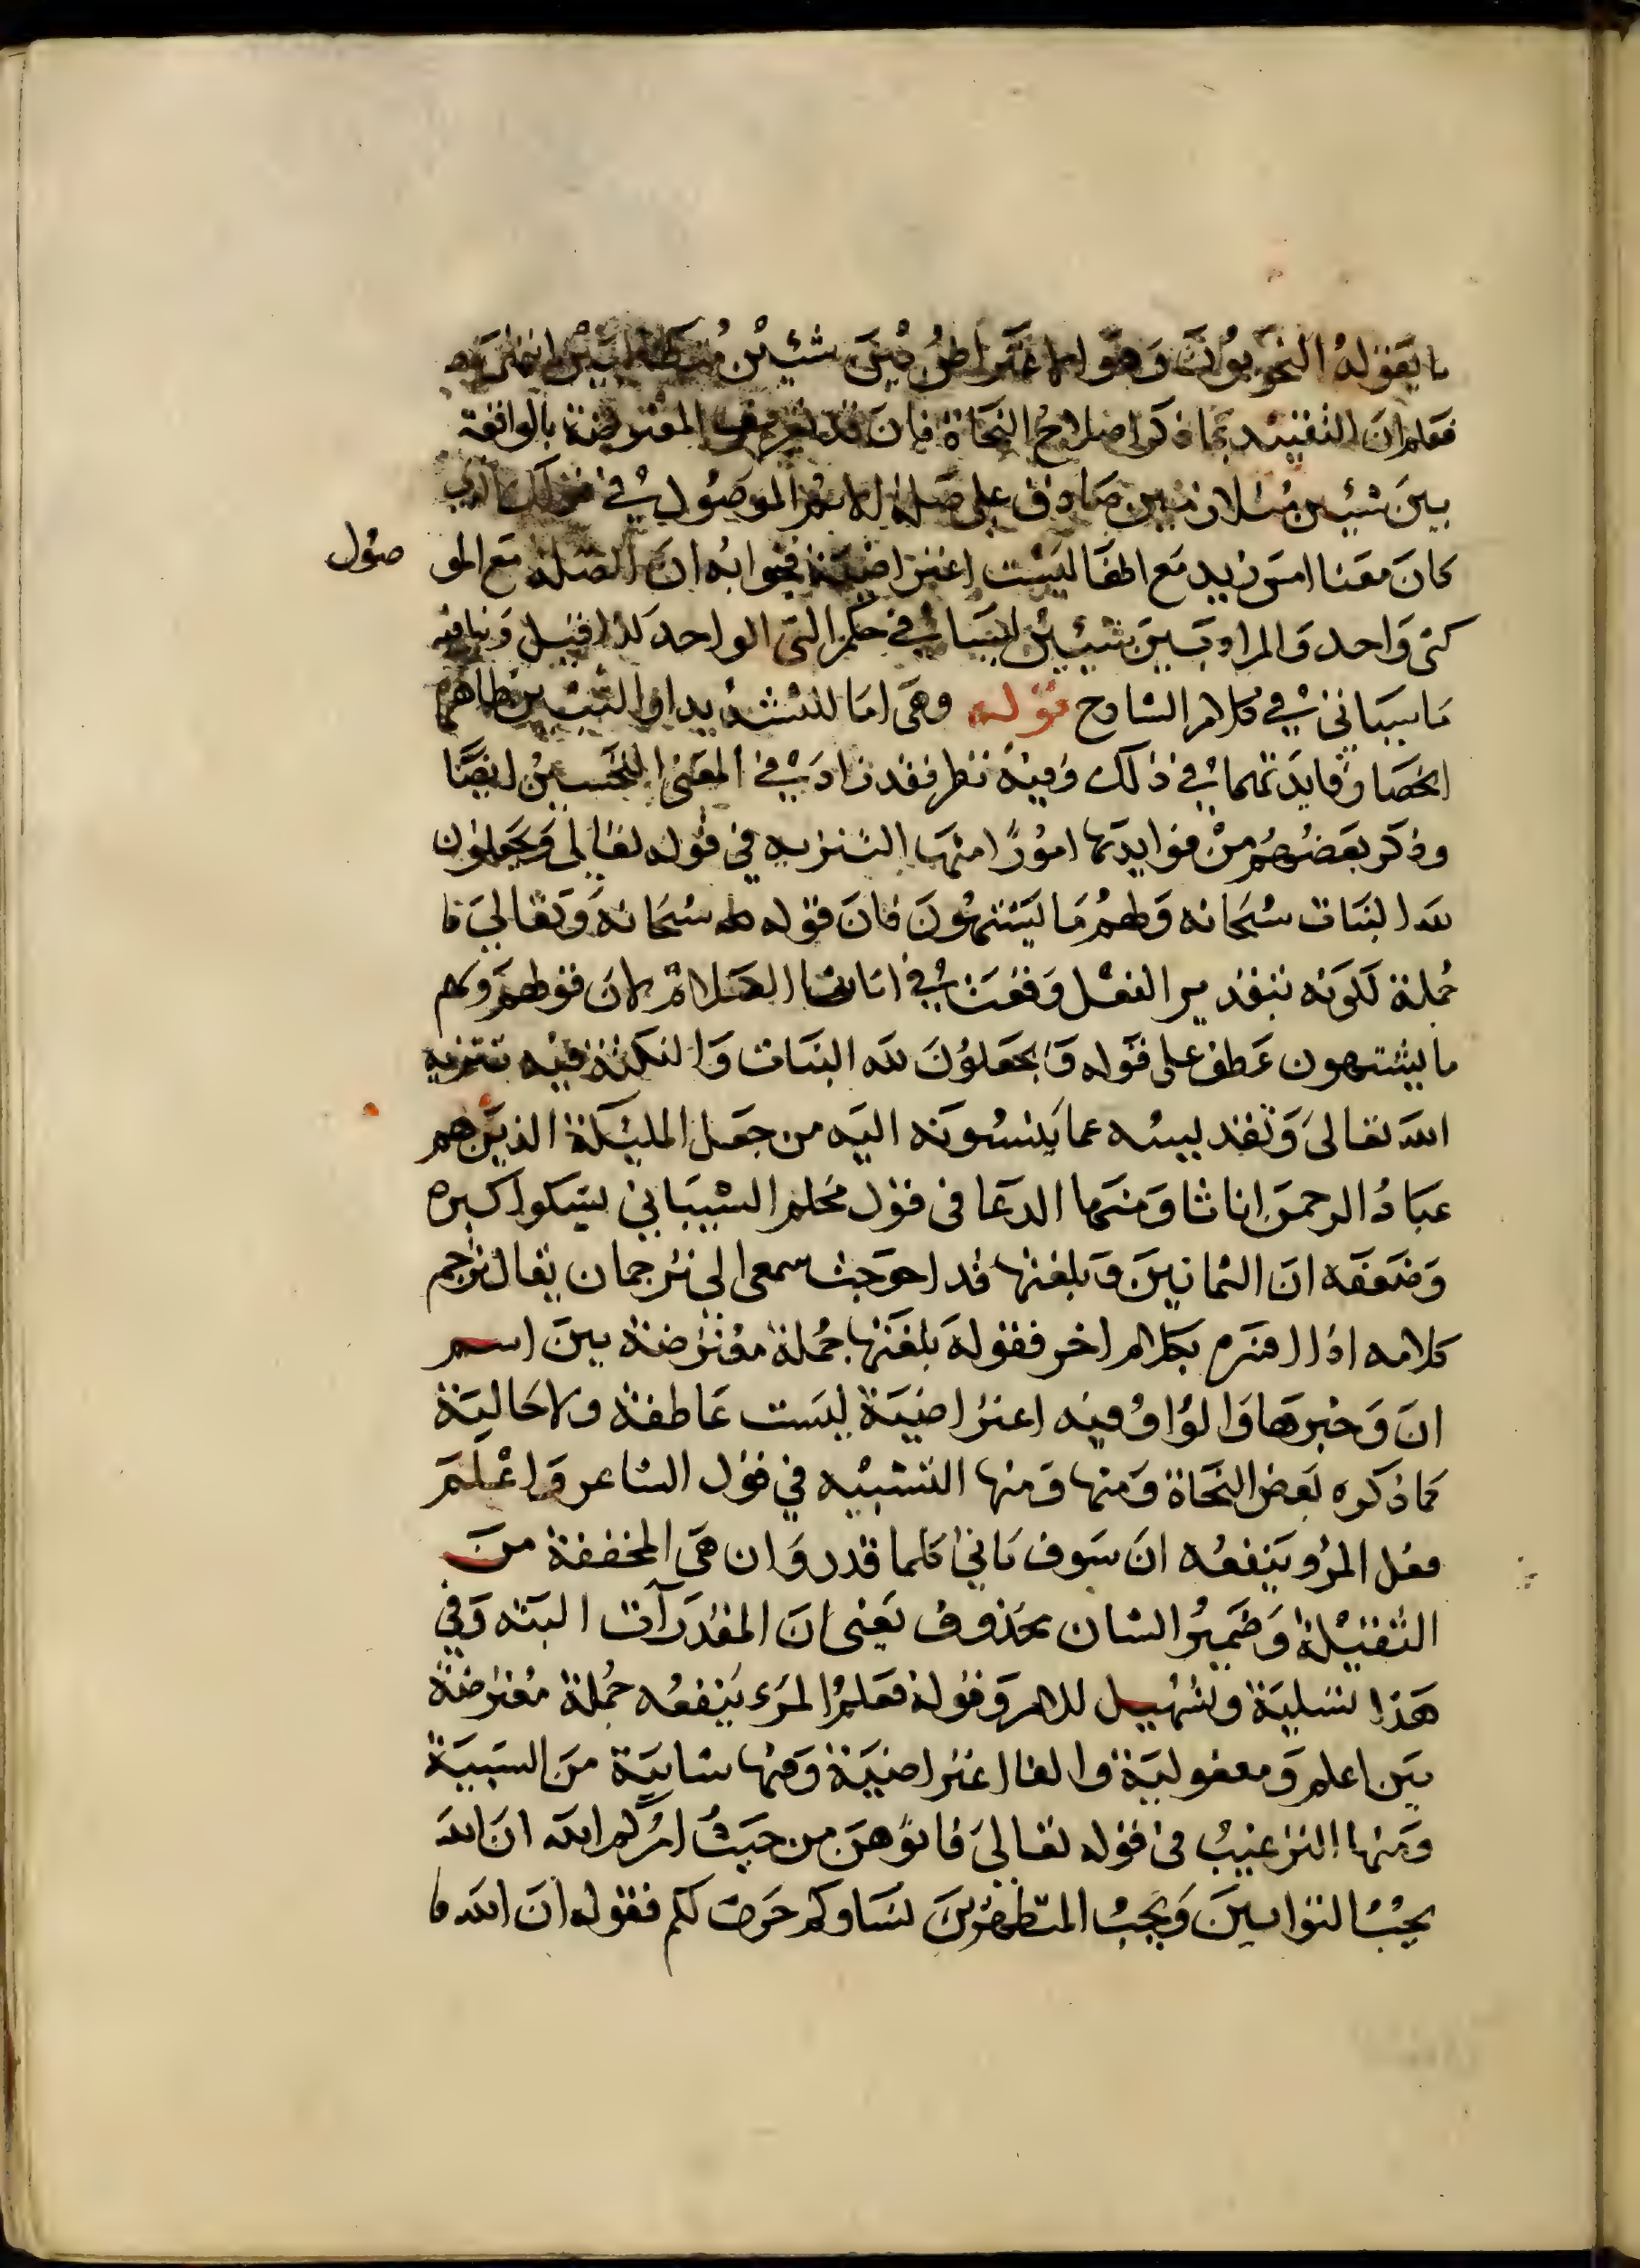 ما يقوله النحويون وهو الاعتراض بين شيئين
فعلم ان التقييد بما ذكر اصلاح النحاة فان قد المعترضة بالواقعة
بين شيئين متلازمين صادق على صلة الاسم الموصول في قولك الذي
كان معنا امس زيد مع انها ليست اعتراضية فجوابه ان الصلة مع الموصول
كشئ واحد والمراد بين شيئين ليسا في حكم الشئ الواحد كذا قيل وينافيه
ما سياتي في كلام الشارح قوله وهي اما للتشديد او التبيين ظاهره
انحصار فايدتهما في ذلك وفيه نظر فقد زاد في المغنى التحسين ايضا
وذكر بعضهم من فوايدها امورا منها التنزيه في قوله تعالى ويجعلون
لله البنات سبحانه ولهم ما يشتهون فان قوله سبحانه وتعالى
جملة لكونه بتقدير الفعل وقعت في اثناء الصلاة لان قولهم ولهم
ما يشتهون عطف على قوله ويجعلون لله البنات والنكتة فيه تنزيه
الله تعالى وتقديسه عما ينسبونه اليه من جعل المليكة الذين هم
عباد الرحمن اناثا ومنها الدعا في قول محلم الشيباني يشكو كبره
وضعفه ان الثمانين وبلغتها قد احوجت سمعى الي ترجمان يقال ترجم
كلامه اذا فسره بكلام اخر فقوله بلغتها جملة معترضة بين اسم
ان وخبرها والواو فيه اعتراضية ليست عاطفة ولا حالية
كما ذكره بعض النحاة ومنها ومنها التنبيه في قول الشاعر واعلم
فعلم المرو ينفعه ان سوف ياتي كلما قدر وان هي المخففة من
الثقيلة وضمير الشان محذوف يعني ان المقدر آت البته وفي
هذا تسلية وتسهيل للامر وقوله فعلم المرء ينفعه جملة معترضة
بين اعلم ومعفولية والفا اعتراضية وفيها شايبة من السببية
ومنها الترغيب في قوله تعالى فاتوهن من حيث امركم الله ان الله
يحب التوابين ويحب المتطهرين نساوكم حرث لكم فقوله ان الله